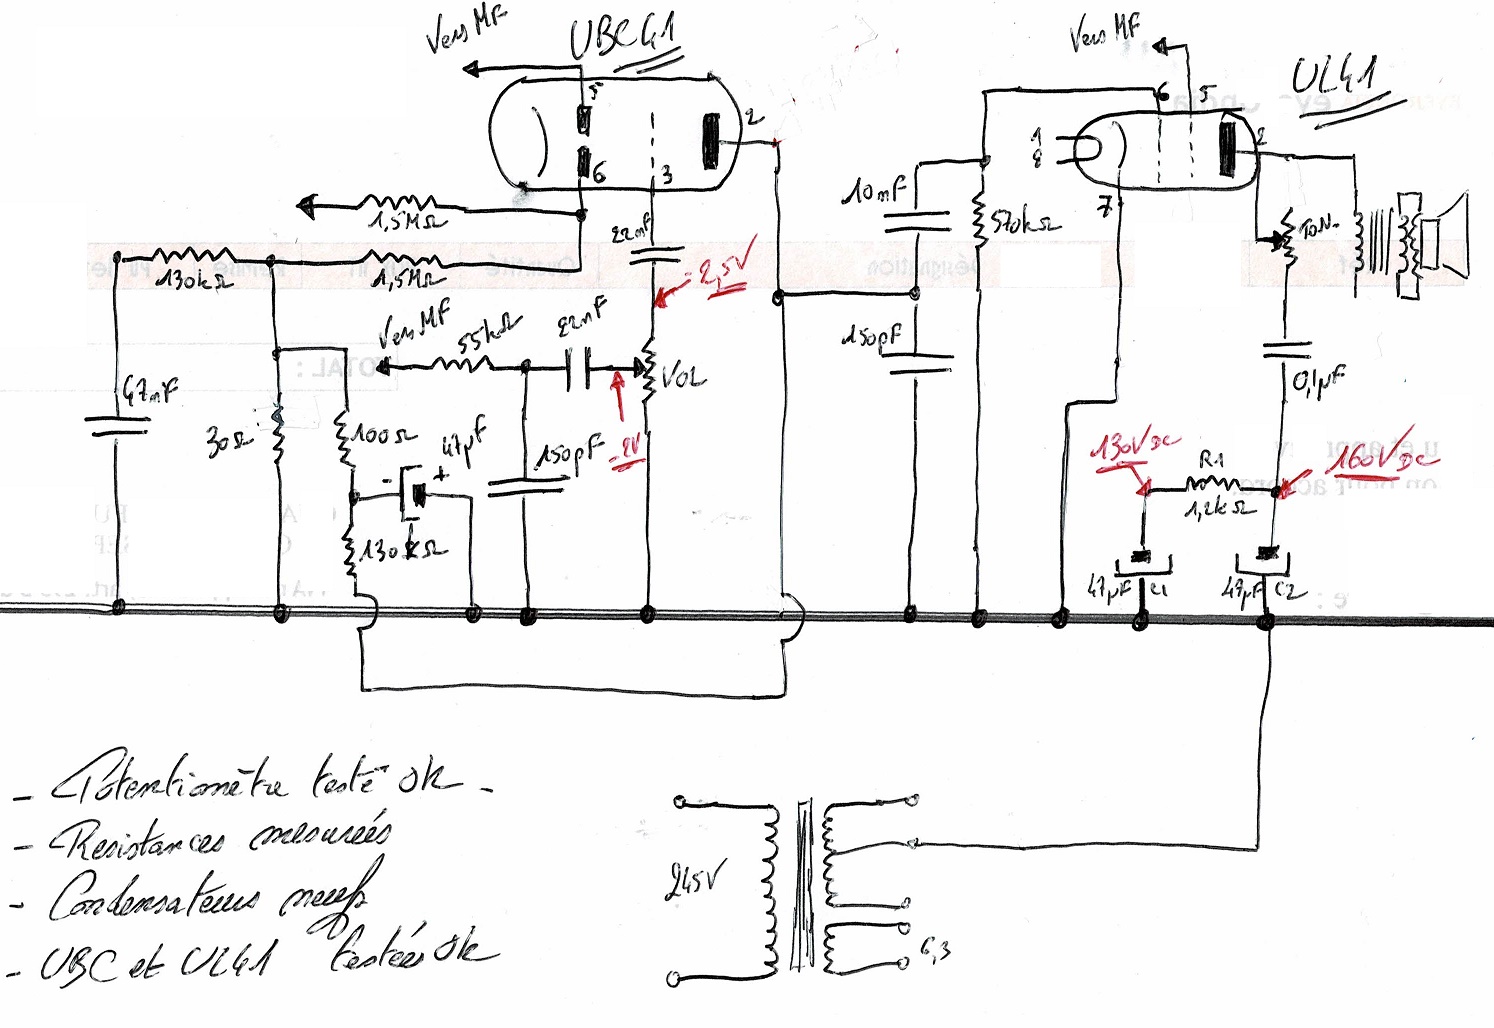 Vers MF
UBC41
5
2
6
3
1,5MΩ
130kΩ
1,5MΩ
22nF
-2,5V
Vers MF
55kΩ
22nF
VOL
47nF
30Ω
100Ω
47µF
-
+
150pF
-2V
130kΩ
Vers MF
UL41
6
5
1
8
2
7
10nF
570kΩ
TON
150pF
0,1µF
130VDC
R1
1,2kΩ
160VDC
47µF C1
47µF C2
- Potentiomètre testé OK -
- Résistances mesurées
- Condensateurs neufs
- UBC et UL41 testées OK
245V
6,3
Désignation
Quantité
Remise
TOTAL :